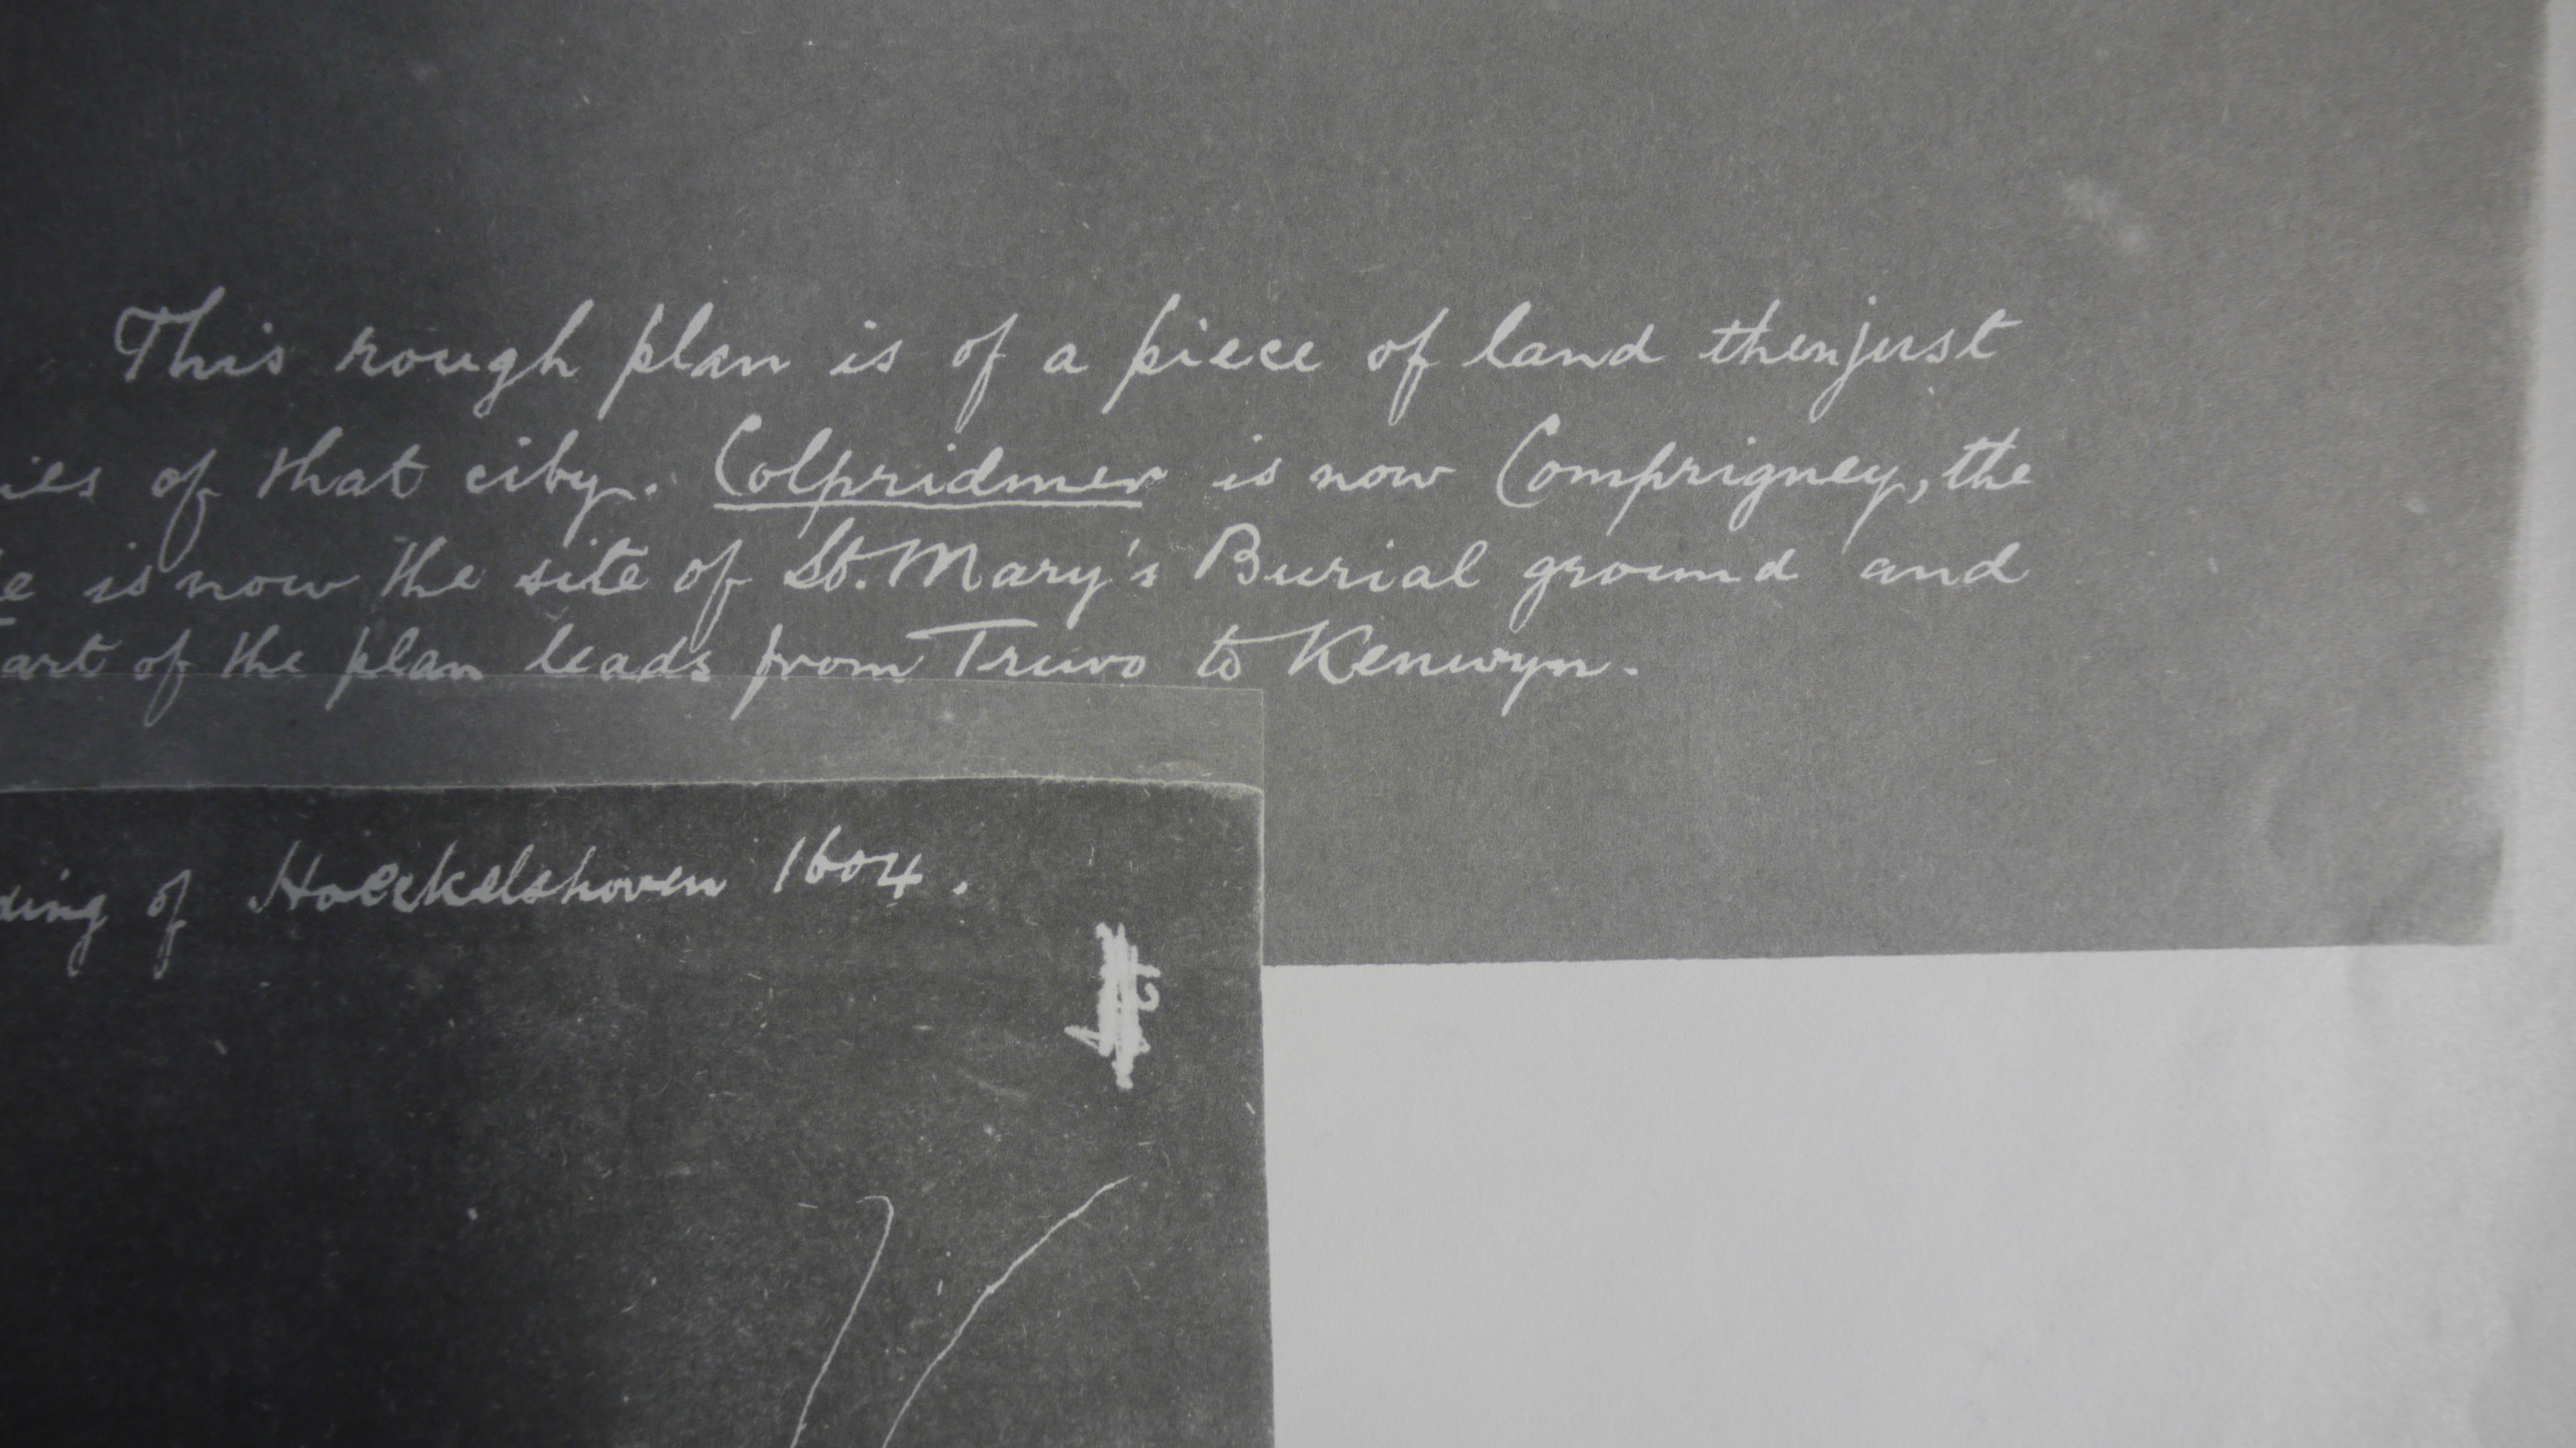 This rough plan is of a piece of land then just
ies of that city. Colpridmer is now Comprigney, the
e is now the site of St. Mary's Burial ground and
art of the plan leads from Truro to Kenwyn.
ding of Hoeckelshoven 1604.